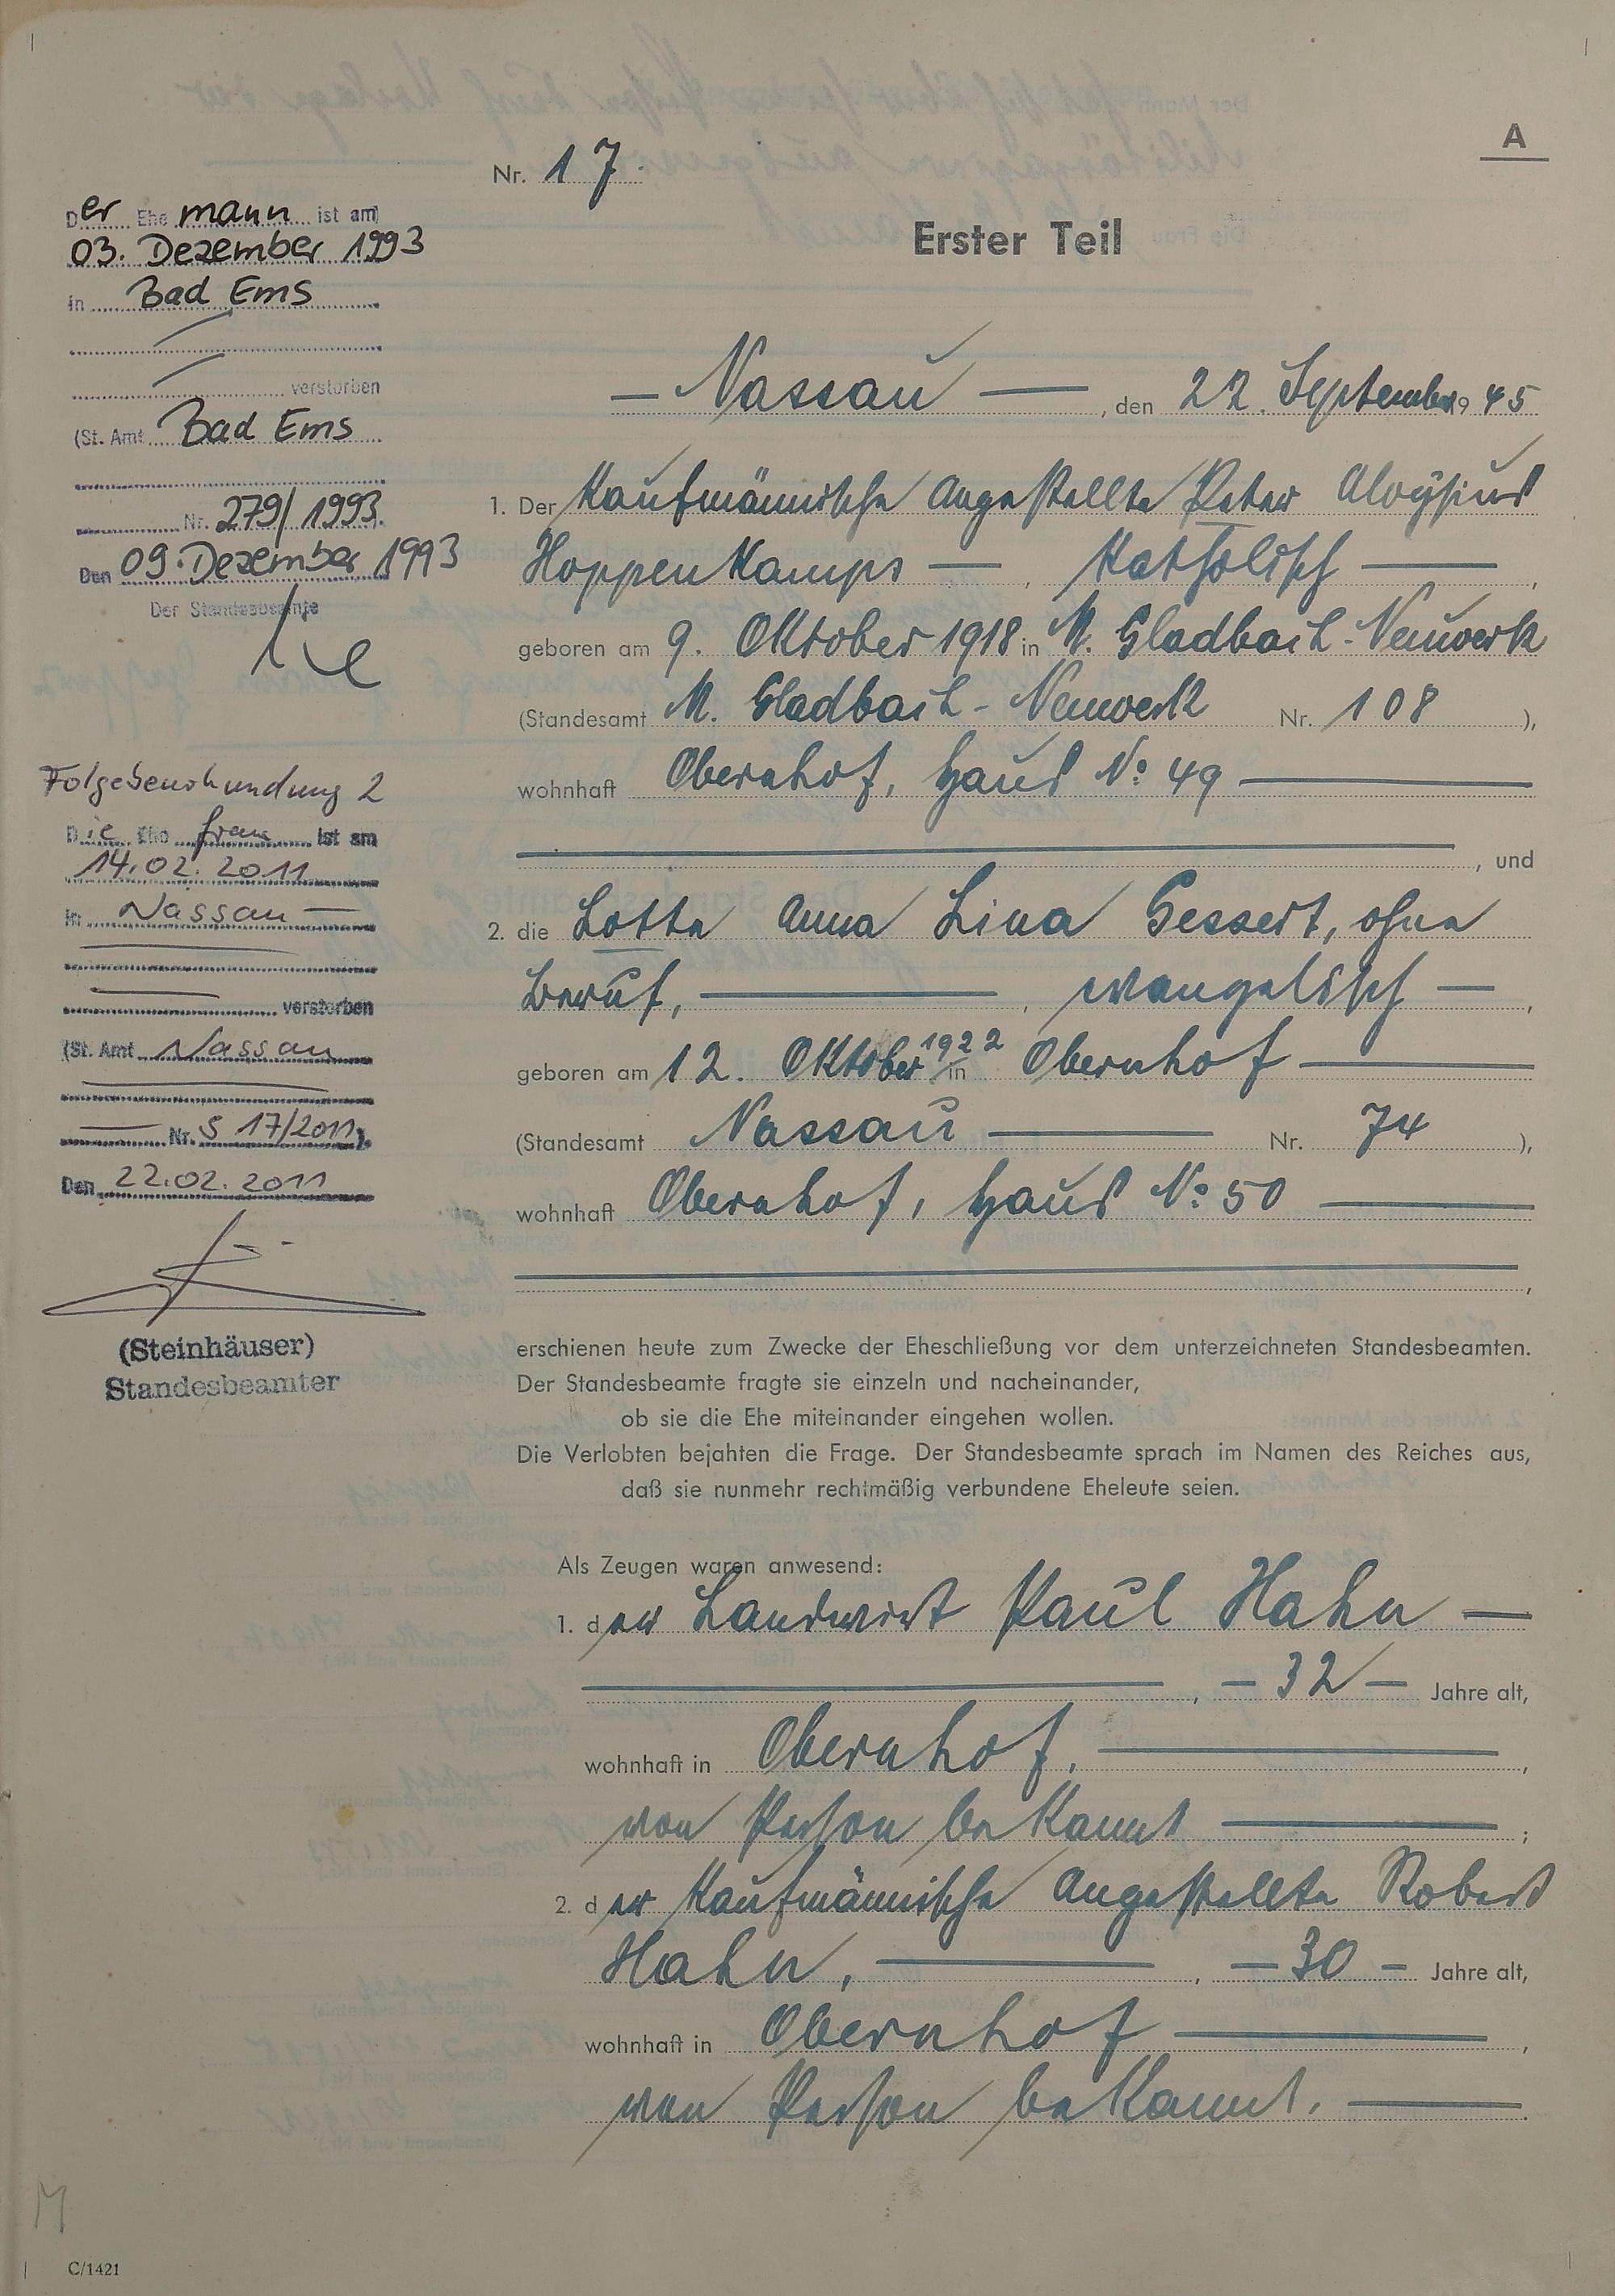 A
Nr. 17.
Erster Teil
Der Ehemann ist am
03. Dezember 1993
in Bad Ems
verstorben
(St. Amt Bad Ems
Nr. 279/1993.
Den 09. Dezember 1993
Der Standesbeamte
Folgebeurkundung 2
Die Ehefrau ist am
14.02.2011
in Nassau
verstorben
(St. Amt Nassau
Nr. S 17/2011).
Den 22.02.2011
(Steinhäuser)
Standesbeamter
Nassau, den 22. September 1945
1. Der Kaufmännische Angestellte Peter Aloysius
Hoppenkamps, katholisch,
geboren am 9. Oktober 1918 in M. Gladbach-Neuwerk
(Standesamt M. Gladbach-Neuwerk Nr. 108),
wohnhaft Obernhof, Haus No. 49
, und
2. die Lotte Anna Lina Gessert, ohne
Beruf, , evangelisch,
geboren am 12. Oktober 1922 in Obernhof
(Standesamt Nassau Nr. 74),
wohnhaft Obernhof, Haus No. 50
,
erschienen heute zum Zwecke der Eheschließung vor dem unterzeichneten Standesbeamten.
Der Standesbeamte fragte sie einzeln und nacheinander,
ob sie die Ehe miteinander eingehen wollen.
Die Verlobten bejahten die Frage. Der Standesbeamte sprach im Namen des Reiches aus,
daß sie nunmehr rechtmäßig verbundene Eheleute seien.
Als Zeugen waren anwesend:
1. der Landwirt Paul Hahn
, 32 Jahre alt,
wohnhaft in Obernhof,
von Person bekannt;
2. der Kaufmännische Angestellte Robert
Hahn, , 30 Jahre alt,
wohnhaft in Obernhof,
von Person bekannt.
C/1421